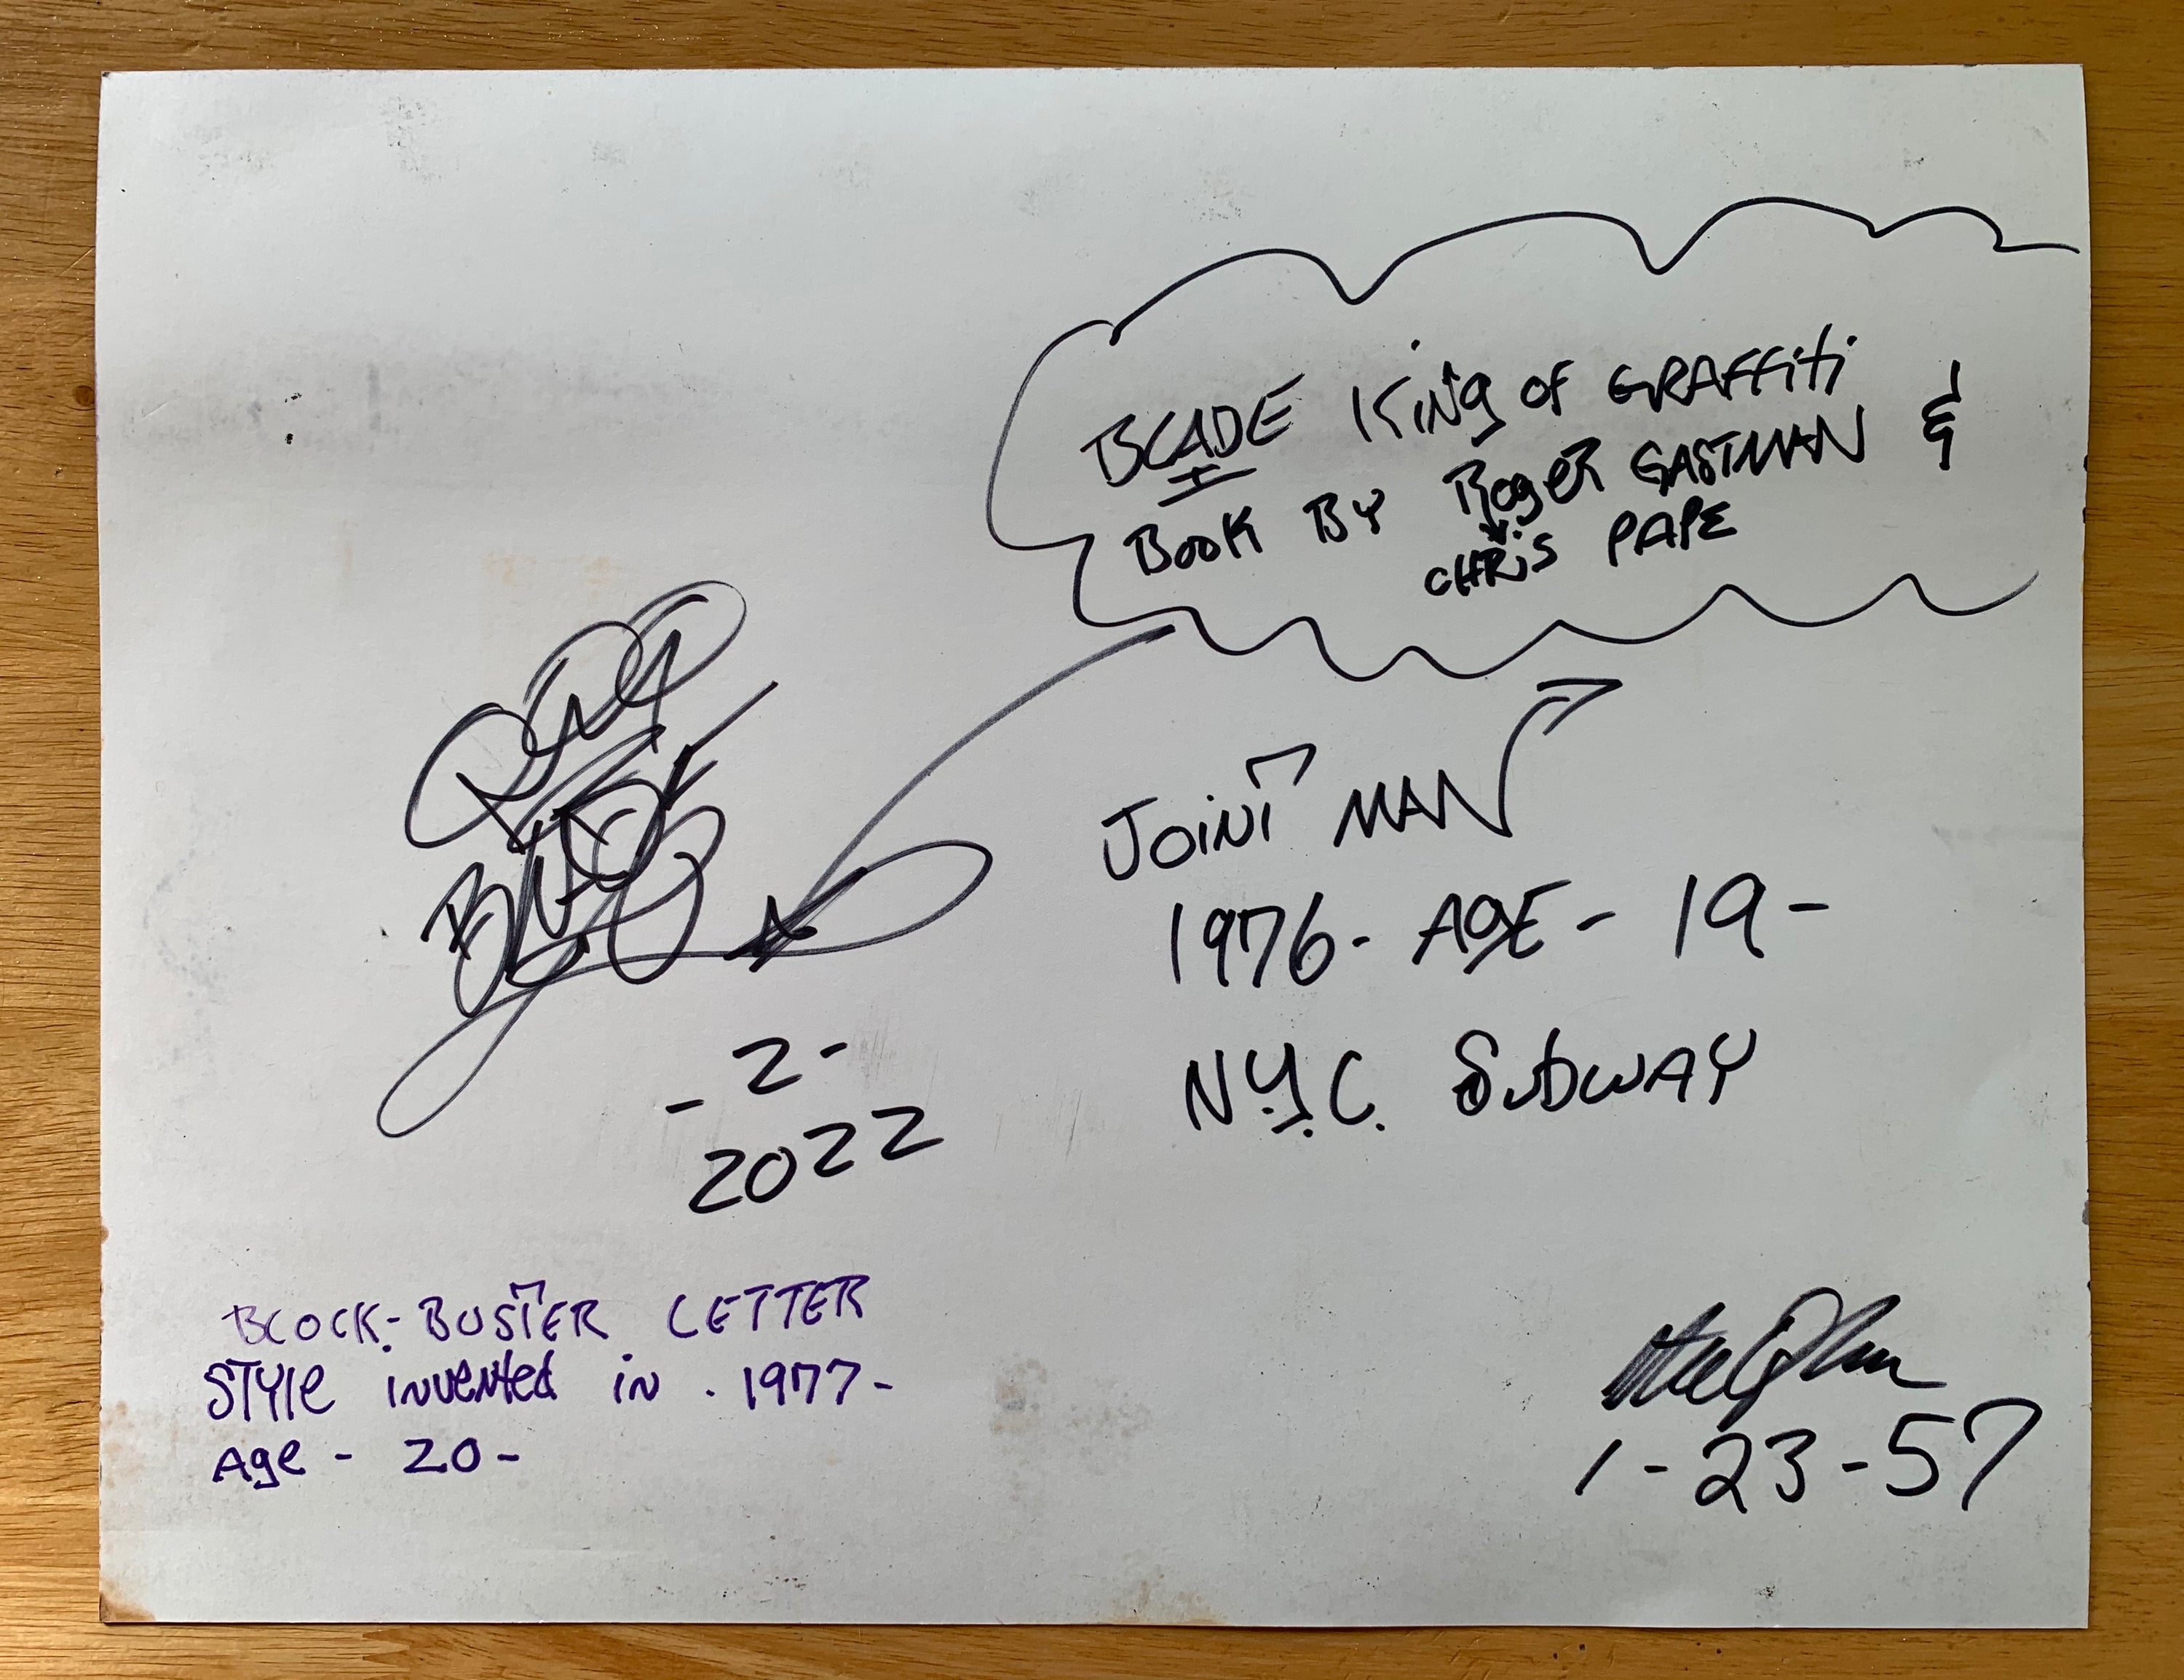 BLADE KiNg OF GRAFFiti
BOOK BY RogeR GASTMAN &
CHRiS PAPE
BLADE
JOiNT MAN
1976- AgE - 19 -
N.Y.C. SUBWAY
- 2 -
2022
BLOCK-BUSTER LETTER
STYle iNveNted iN . 1977-
Age - 20 -
1-23-57